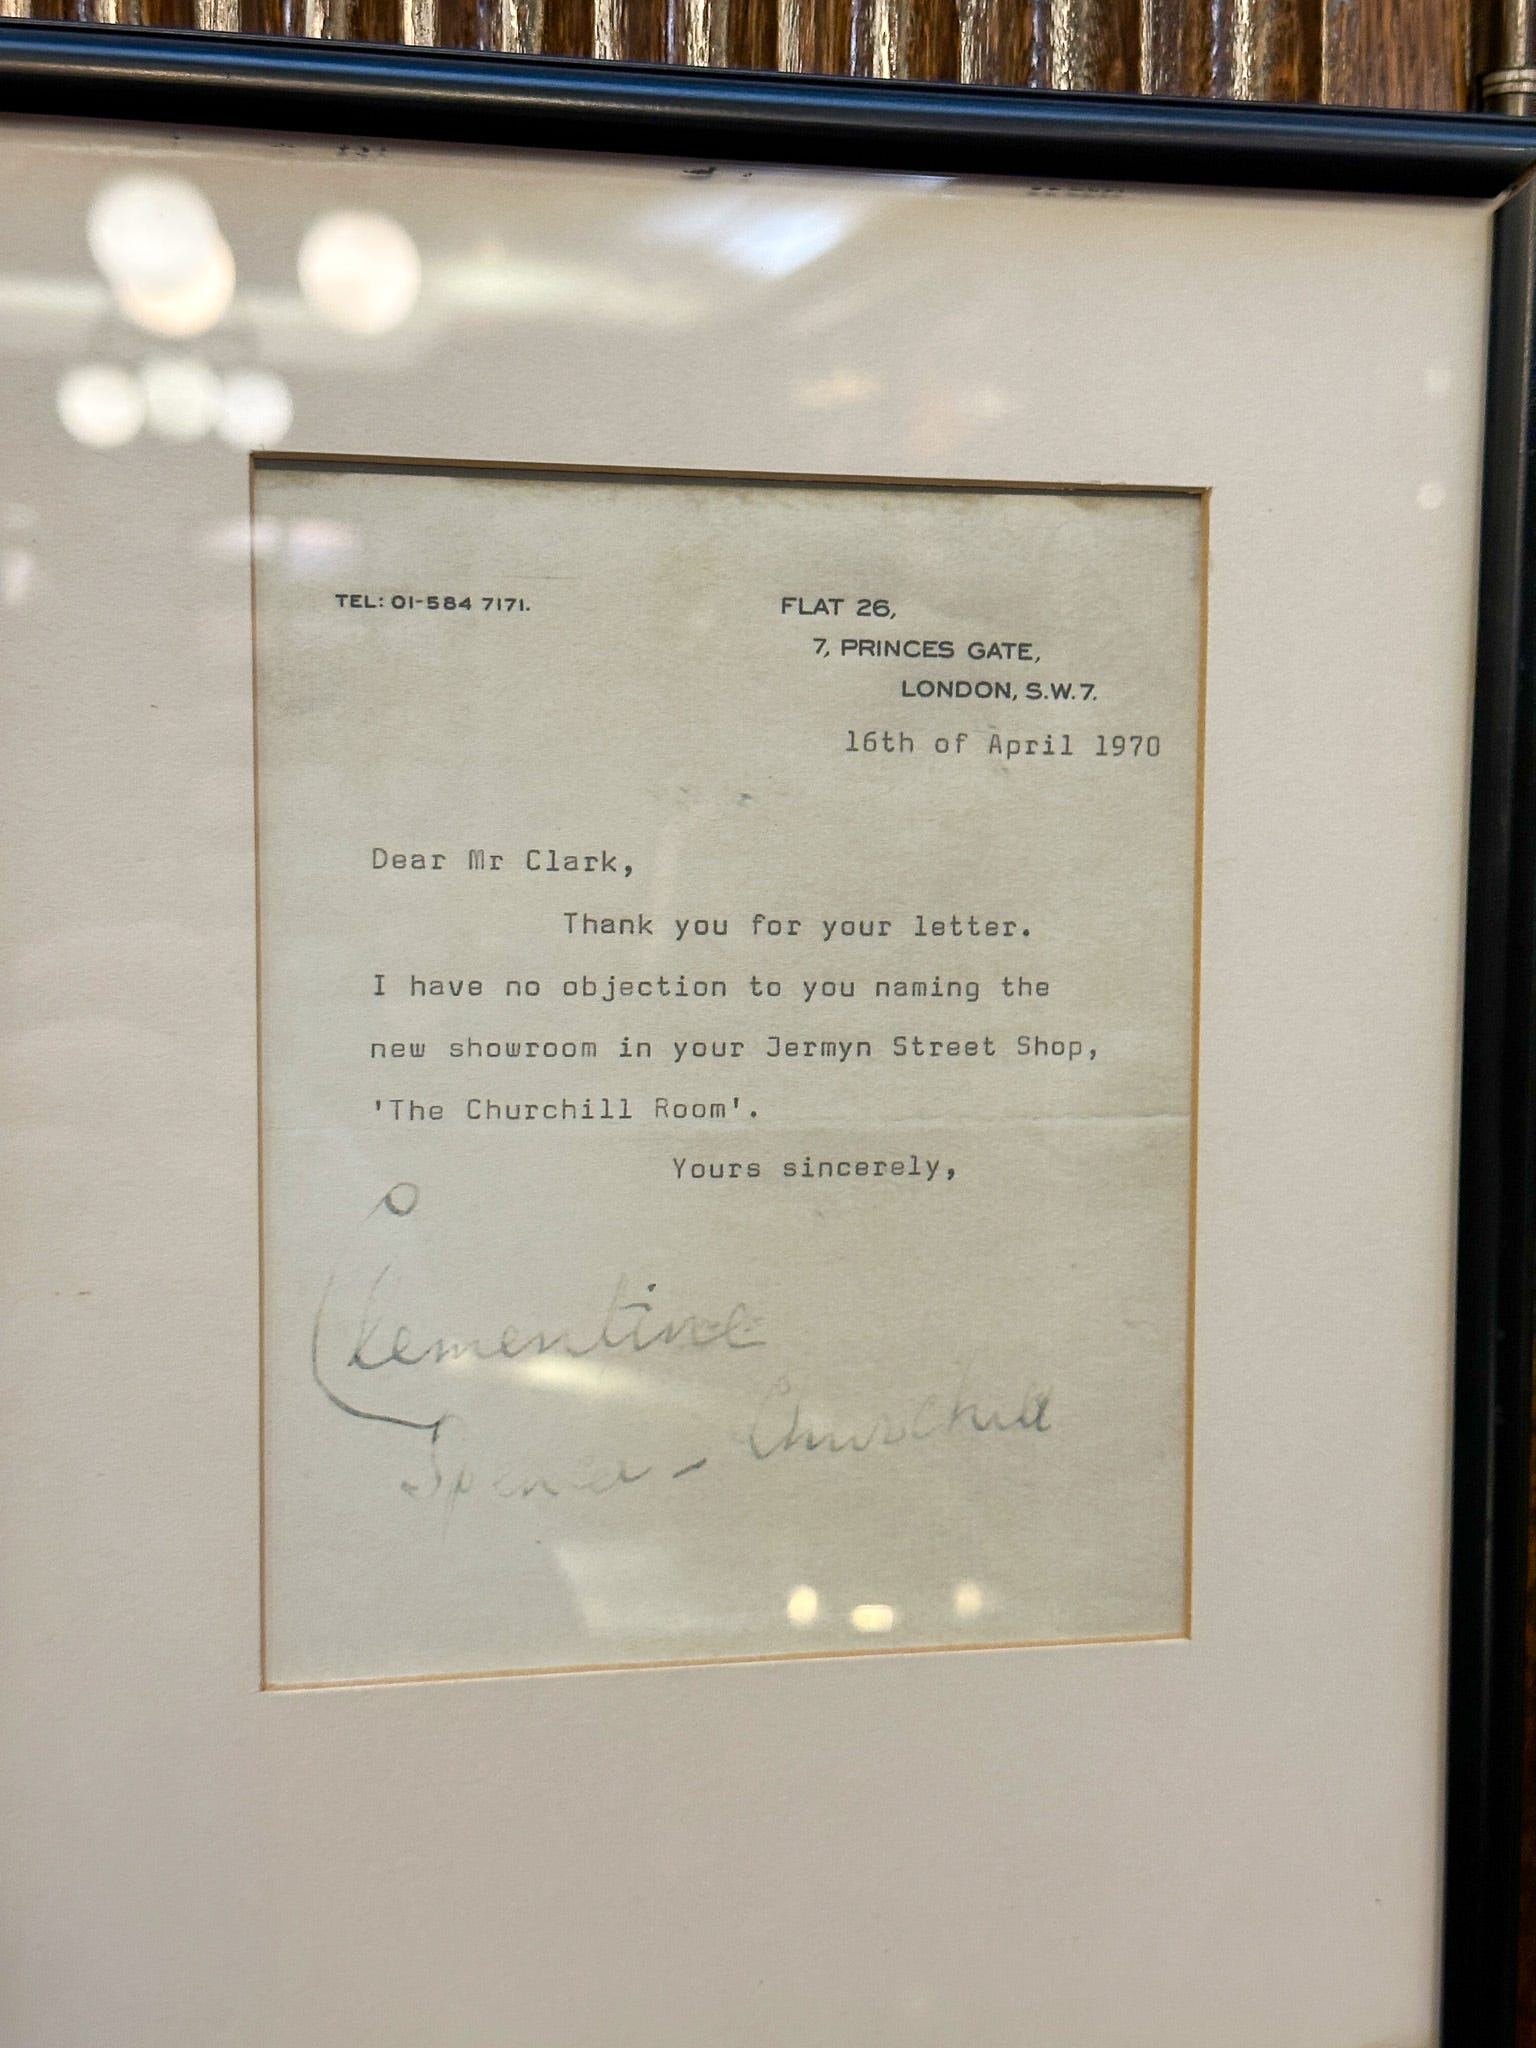 TEL: 01-584 7171.
FLAT 26,
7, PRINCES GATE,
LONDON, S.W.7.
16th of April 1970
Dear Mr Clark,
Thank you for your letter.
I have no objection to you naming the
new showroom in your Jermyn Street Shop,
'The Churchill Room'.
Yours sincerely,
Clementine
Spencer-Churchill